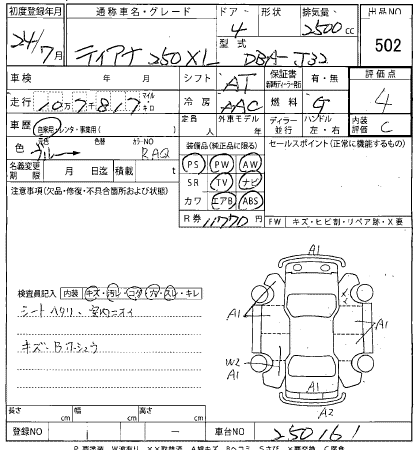 初度登録年月 通称車名・グレード ドア・形状 排気量 出品NO
24/7月 ティアナ 250XL 4 2500cc 502
型式 DBA-J32
車検 年 月 シフト AT 保証書 有・無 評価点
走行 10万7千817 マイル キロ 冷房 AAC 燃料 G 4
車歴 自家用 レンタ・事業用( ) 定員 人 外車モデル 年 ディーラー 並行 ハンドル 左・右 内装評価 C
色 ブルー 色替 カラーNO RAQ
装備品(純正品に限る) セールスポイント(正常に機能するもの)
PS PW AW
名義変更期限 月 日迄 積載 t SR TV ナビ
注意事項(欠品・修復・不具合箇所および状態) カワ エアB ABS
R券 11770円 FW キズ・ヒビ割・リペア跡・X要
A1
検査員記入 内装 キズ・汚レ・コゲ・穴・スレ・キレ
シートヘタリ、室内ニオイ
A1 A1
キズ・Bホシュウ
W2 A1
A1
A2
長さ cm 幅 cm 高さ cm
登録NO 車台NO 250161